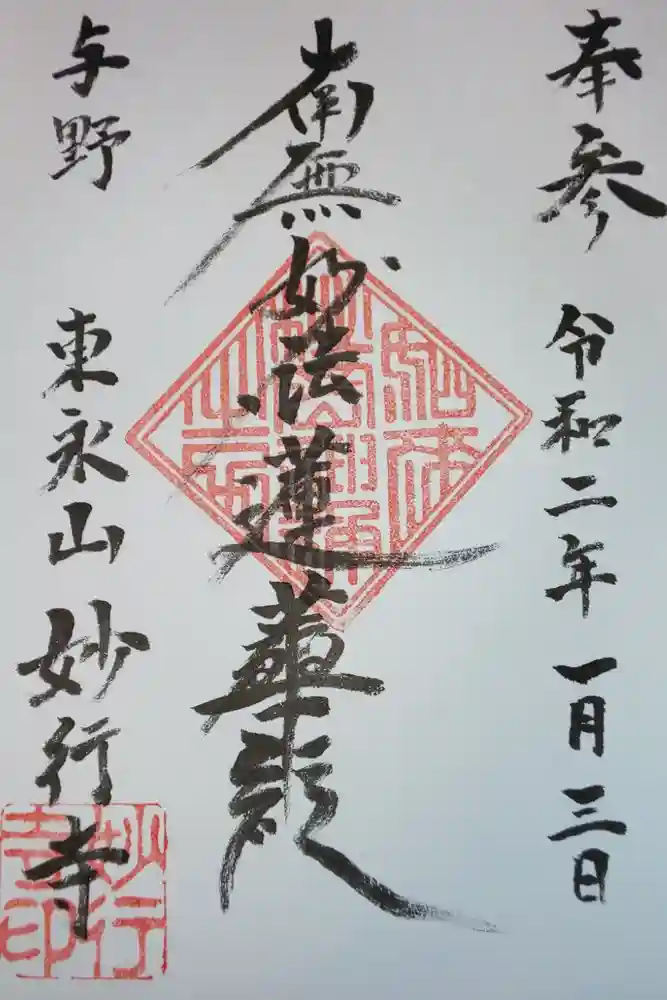 奉参 令和二年一月三日
南無妙法蓮華経
与野 東永山妙行寺
妙行
寺印